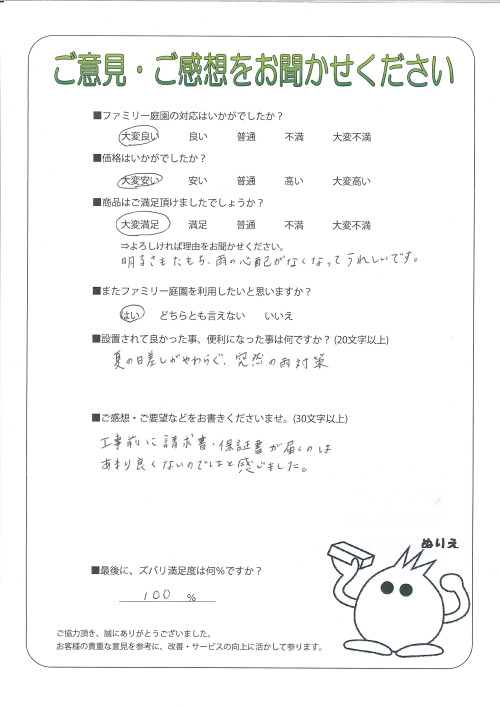 ご意見・ご感想をお聞かせください
■ファミリー庭園の対応はいかがでしたか？
大変良い 良い 普通 不満 大変不満
■価格はいかがでしたか？
大変安い 安い 普通 高い 大変高い
■商品はご満足頂けましたでしょうか？
大変満足 満足 普通 不満 大変不満
⇒よろしければ理由をお聞かせください。
明るさもたもち、雨の心配がなくなってうれしいです。
■またファミリー庭園を利用したいと思いますか？
はい どちらとも言えない いいえ
■設置されて良かった事、便利になった事は何ですか？(20文字以上)
夏の日差しがやわらぐ、突然の雨対策
■ご感想・ご要望などをお書きくださいませ。(30文字以上)
工事前に請求書・保証書が届くのは
あまり良くないのではと感じました。
ぬりえ
■最後に、ズバリ満足度は何%ですか？
100 %
ご協力頂き、誠にありがとうございました。
お客様の貴重な意見を参考に、改善・サービスの向上に活かして参ります。